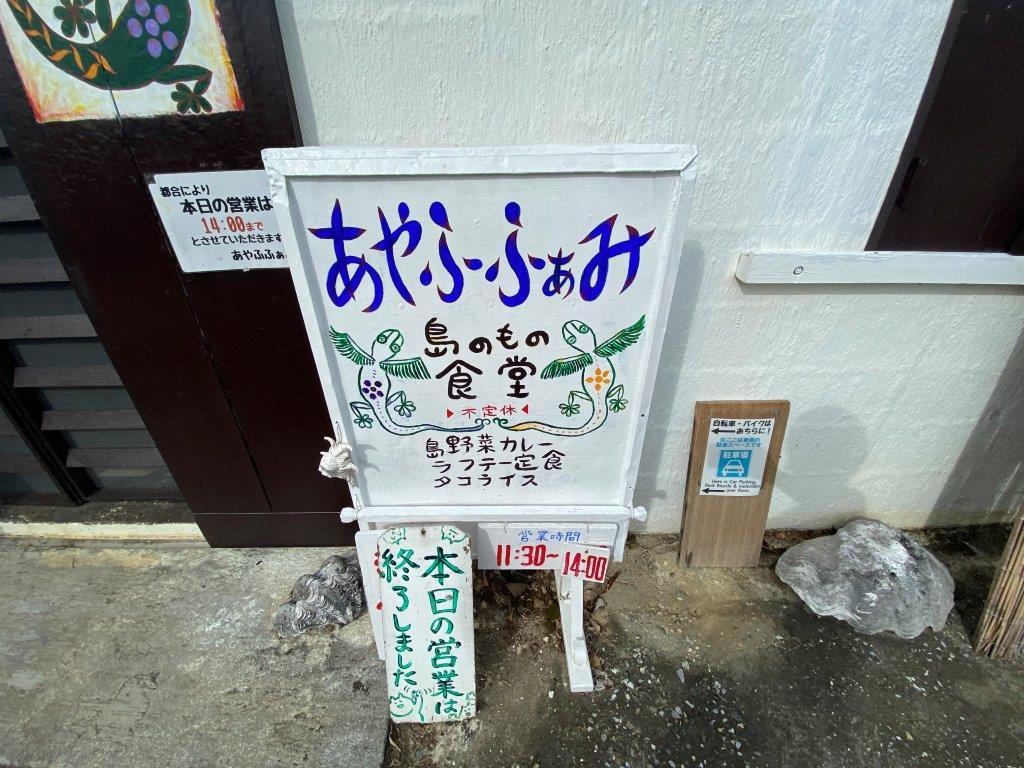 都合により
本日の営業は
14:00まで
とさせていただきます
あやふふぁ
あやふふぁみ
島のもの
食堂
▶不定休◀
島野菜カレー
ラフテー定食
タコライス
営業時間
11:30~14:00
本日の営業は
終了しました
自転車・バイクは
あちらに!
※ここは車両の
駐車スペースです
駐車場
Here is Car Parking.
Park Bicycle & motorbike
over there.